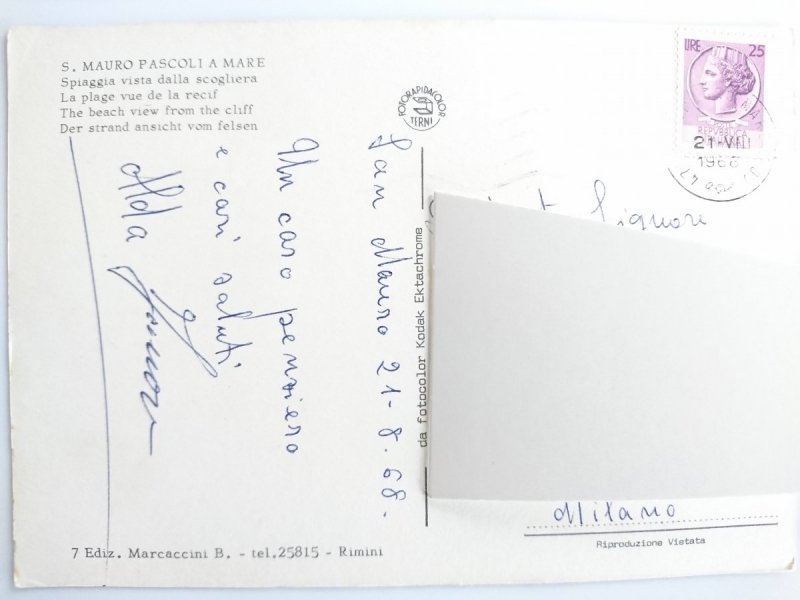 S. MAURO PASCOLI A MARE
Spiaggia vista dalla scogliera
La plage vue de la recif
The beach view from the cliff
Der strand ansicht vom felsen
FOTORAPIDACOLOR
TERNI
LIRE 25
REPVBBLICA
21 VIII
1968
San Mauro 21-8.68.
Un caro pensiero
e cari saluti
Alda
Signore
da fotocolor Kodak Ektachrome
Milano
Riproduzione Vietata
7 Ediz. Marcaccini B. - tel.25815 - Rimini